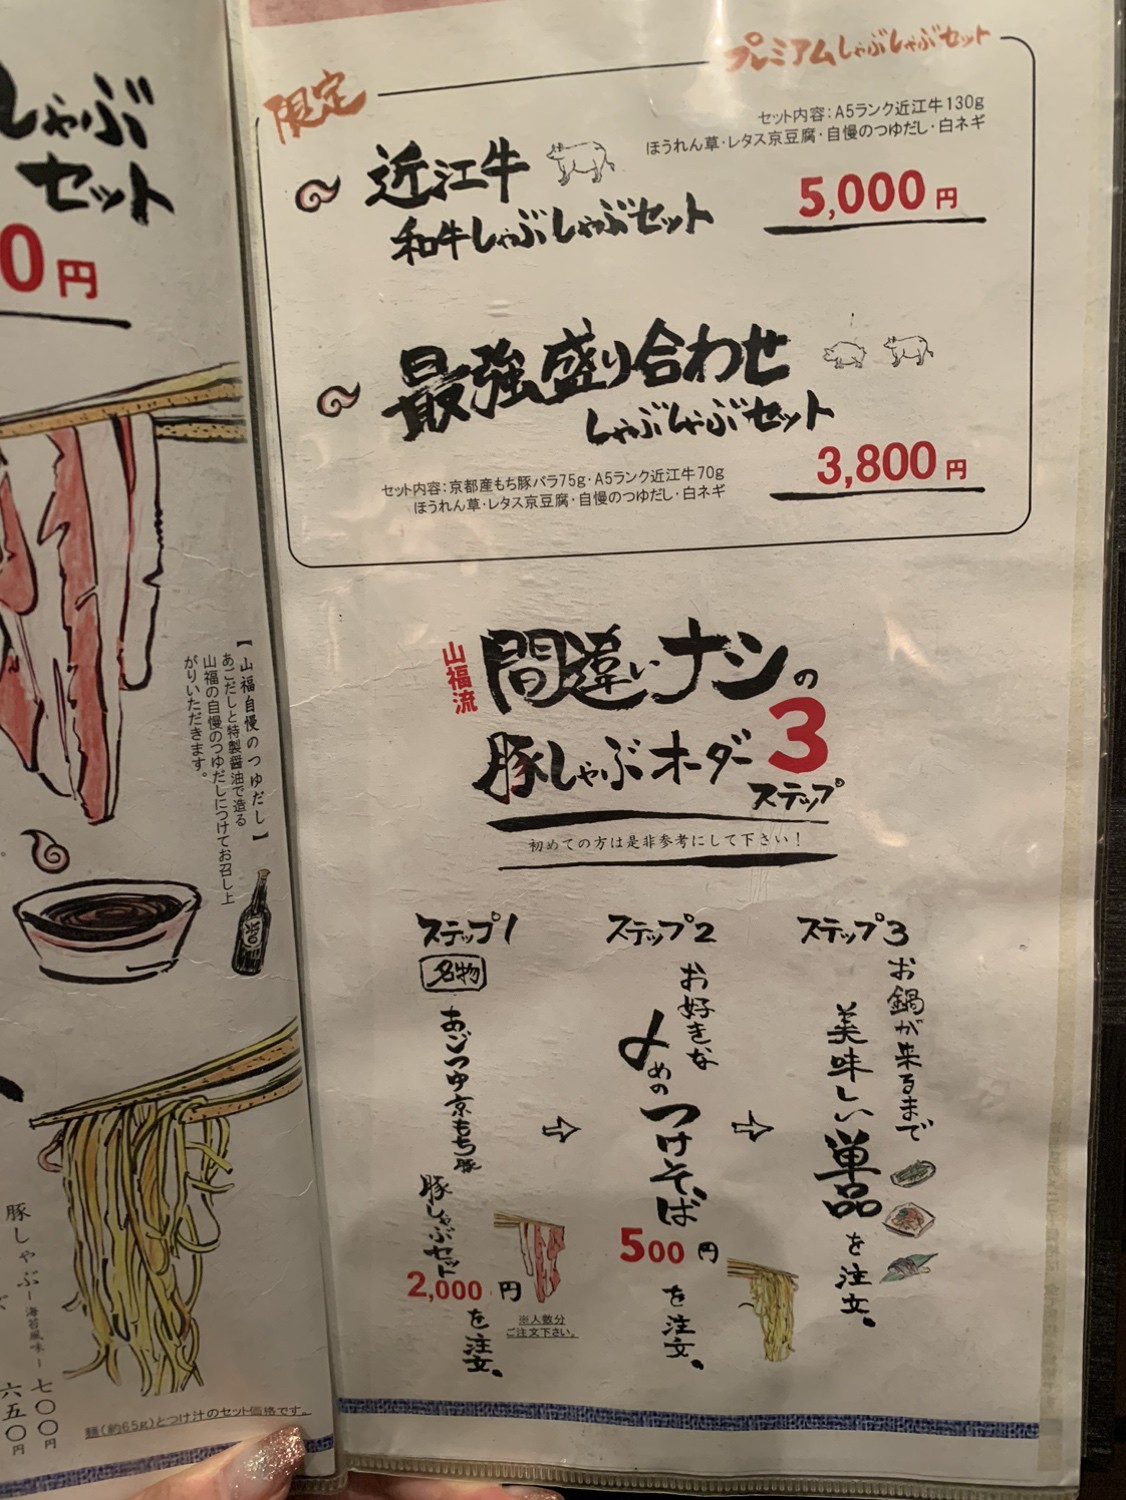 しゃぶ
セット
0円
【山福自慢のつゆだし】
あごだしと特製醤油で造る
山福の自慢のつゆだしにつけてお召し上
がりいただきます。
豚しゃぶ
ー海苔風味ー 七〇〇円
六五〇円
麺(約65g)とつけ汁のセット価格です。
限定
プレミアムしゃぶしゃぶセット
近江牛
和牛しゃぶしゃぶセット
セット内容:A5ランク近江牛130g
ほうれん草・レタス京豆腐・自慢のつゆだし・白ネギ
5,000円
最強盛り合わせ
しゃぶしゃぶセット
セット内容:京都産もち豚バラ75g・A5ランク近江牛70g
ほうれん草・レタス京豆腐・自慢のつゆだし・白ネギ
3,800円
山福流
間違いナシの
豚しゃぶオーダー3
ステップ
初めての方は是非参考にして下さい!
ステップ1
名物
あごつゆ京もち豚
豚しゃぶセット
2,000円
を注文。
※人数分
ご注文下さい。
ステップ2
お好きな
〆めの
つけそば
500円
を注文。
ステップ3
お鍋が来るまで
美味しい単品を注文。